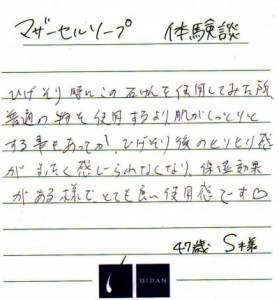 マザーセルソープ 体験談
ひげそり時にこの石けんを使用してみた所
普通の物を使用するより肌がしっとりと
する事もあってか!、ひげそり後のヒリヒリ感
がまったく感じられなくなり、保湿効果
がある様でとても良い使用感です♡
47歳 S様
BIDAN